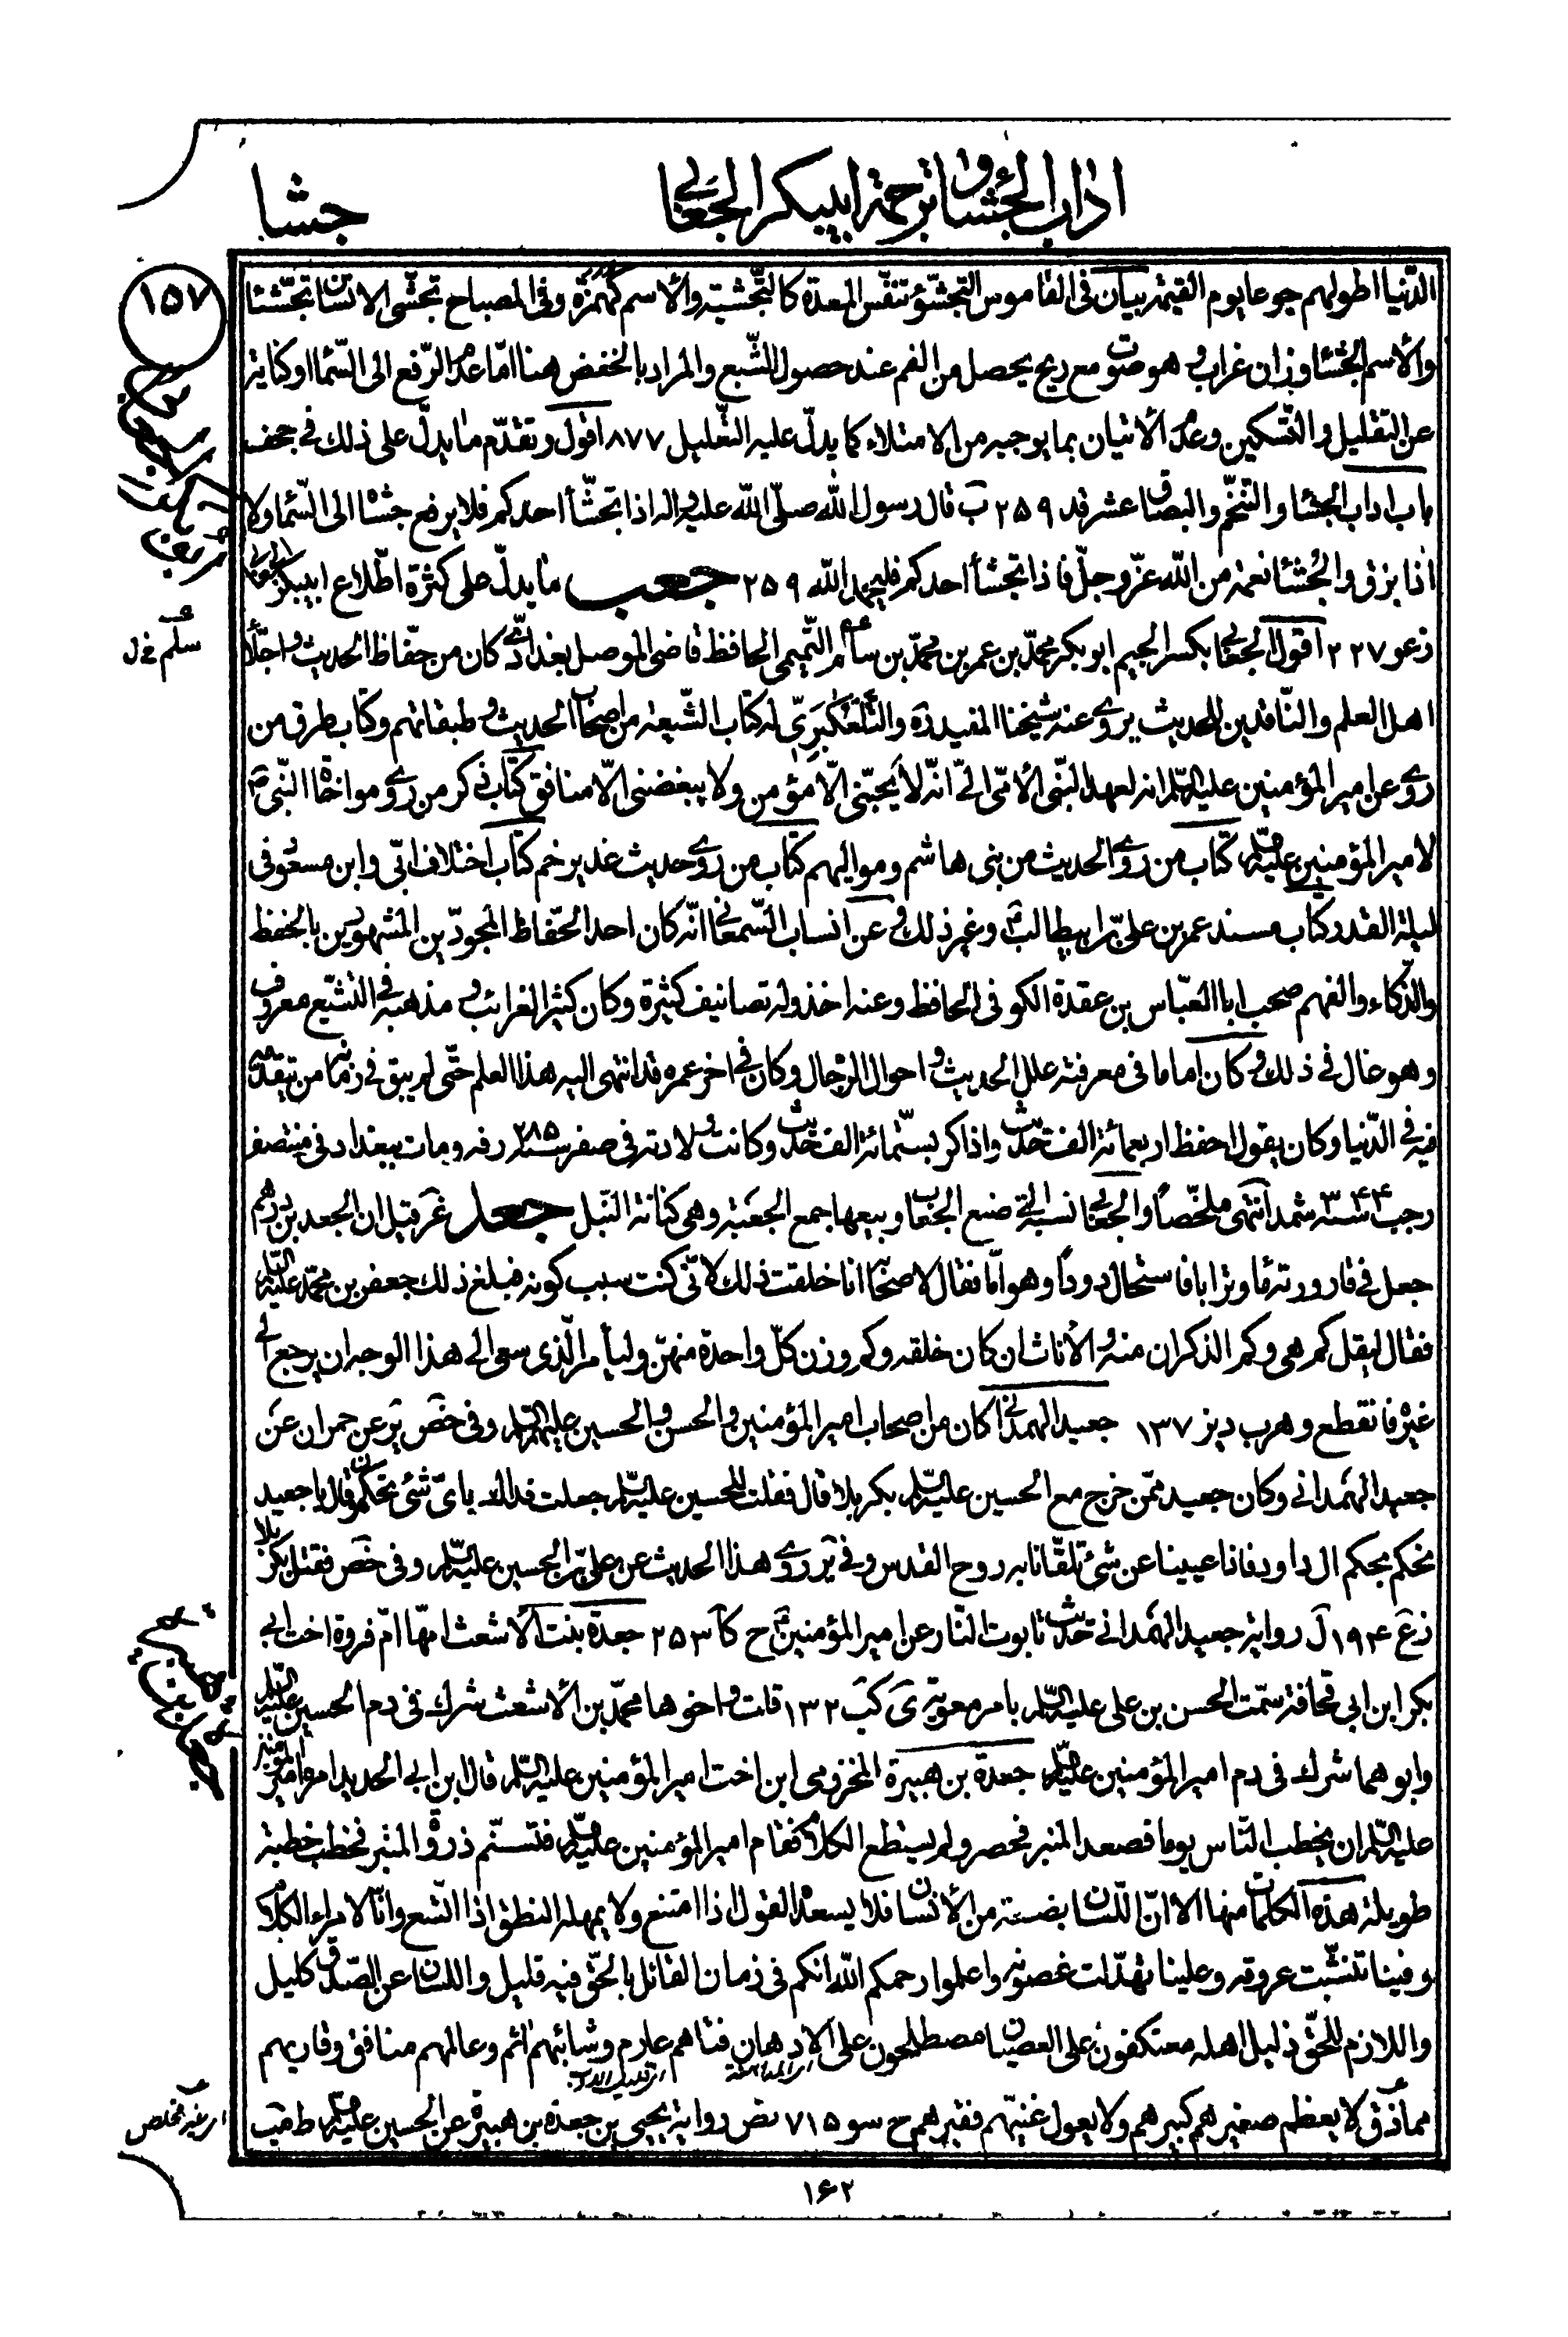 اداب الجشاء و ترجمة ابیبکر الجعابی
جشا
۱۵۷
الدّنیا اطولهم جوعا یوم القیمة بیان فی القاموس التجشّؤ تنفّس المعدة کالتّجشئة والاسم کهمزة وفی المصباح تجشّی الانسان تجشّئا
والاسم الجشاء وزان غراب وهو صوت مع ریح یحصل من الفم عند حصول الشّبع والمراد بالخفض هنا امّا عدم الرّفع الی السّماء او کنایة
عن التقلیل والتّسکین وعدم الاتیان بما یوجبه من الامتلاء کما یدلّ علیه التّعلیل ۸۷۷ اقول وتقدّم ما یدلّ علی ذلک فی جحف
باب اداب الجشاء والتّنخّم والبصاق عشر قد ۲۵۹ ب قال رسول الله صلّی الله علیه واله اذا تجشّأ احدکم فلا یرفع جشاه الی السّماء ولا
اذا بزق والجُشاء نعمة من الله عزّوجلّ فاذا تجشأ احدکم فلیحمد الله ۲۵۹ جعب ما یدلّ علی کثرة اطّلاع ابیبکر الجعابی
ذعو ۲۲۷ اقول الجعابی بکسر الجیم ابو بکر محمّد بن عمر بن محمّد بن سالم التّمیمی الحافظ قاضی الموصل بغدادیّ کان من حفّاظ الحدیث واجلّاء
سلم خ ل
اهل العلم والنّاقدین للحدیث یروی عنه شیخنا المفید ره والتّلّعُکبَریّ له کتاب الشّیعة من اصحاب الحدیث وطبقاتهم وکتاب طرق من
روی عن امیر المؤمنین علیه السّلم انه لعهد النّبی الامّی الیّ انّه لا یحبّنی الّا مؤمن ولا یبغضنی الّا منافق کتاب ذکر من روی مواخاة النّبی ص
لامیر المؤمنین علیه السّلم کتاب من روی الحدیث من بنی هاشم وموالیهم کتاب من روی حدیث غدیر خم کتاب اختلاف ابّی وابن مسعود فی
لیلة القدر وکتاب مسند عمر بن علیّ بن ابیطالب ع وغیر ذلک وعن انساب السّمعانی انّه کان احد الحّفاظ المجودّین المشهورین بالحفظ
والذّکاء والفهم صحب ابا العبّاس بن عقدة الکوفی الحافظ وعنه اخذ وله تصانیف کثیرة وکان کثیر الغرائب ومذهبه فی التشیّع معروف
وهو غال فی ذلک وکان اماما فی معرفته علل الحدیث واحوال الرّجال وکان فی اخر عمره قد انتهی الیه هذا العلم حتّی لم یبق فی زمانه من یتقدّمه
فیه فی الدّنیا وکان یقول احفظ اربعمائة الف حدیث واذاکر بستّمائة الف حدیث وکانت ولادته فی صفر سنة ۲۸۵ رفه ومات ببغداد فی منتصف
رجب سنة ۳۴۴ شمد انتهی ملخّصاً والجعابی نسبة الی صنع الجعاب وبیعها جمع الجعَبَة وهی کنانة النّبل جعل غر قیل ان الجعد بن درهم
جعل فی قارورة ماء وترابا فاستحال دوداً وهوامّا فقال لاصحابه انا خلقت ذلک لانّی کنت سبب کونه فبلغ ذلک جعفر بن محمّد علیه السّلم
فقال لیقل کم هی وکم الذکران منه والاناث ان کان خلقه وکم وزن کلّ واحدة منهنّ ولیأمر الّذی سعی الی هذا الوجه ان یرجع الی
غیره فانقطع وهرب دیز ۱۳۷ جعید الهمدانی کان من اصحاب امیر المؤمنین والحسن والحسین علیهم السّلم وفی خص یر عن حمران عن
جعید الهَمدانی وکان جعید ممّن خرج مع الحسین علیه السّلم بکربلا قال فقلت للحسین علیه السّلم جعلت فداک بایّ شئ تحکمون قال یا جعید
نحکم بحکم ال داود فاذا عیینا عن شئ تلقّانا به روح القدس وفی یر روی هذا الحدیث عن علیّ بن الحسین علیه السّلم وفی خص فقتل بکربلا
زع ۱۹۴ ل روایة جعید الهَمدانی حدیث تابوت النّار عن امیر المؤمنین ع ح کا ۲۵۳ جعدة بنت الاشعث امّها امّ فروة اخت ابی
بکر ابن ابی قحافة سمّت الحسن بن علی علیه السّلم بامر معویة ی کب ۱۳۲ قلت واخوها محمّد بن الاشعث شرک فی دم الحسین علیه السّلم
وابوهما شرک فی دم امیر المؤمنین علیه السّلم جعدة بن هبیرة المخزومی ابن اخت امیر المؤمنین علیه السّلم قال بن ابی الحدید امره امیر المؤمنین
علیه السّلم ان یخطب النّاس یوما فصعد المنبر فحصر ولم یستطع الکلام فقام امیر المؤمنین علیه السّلم فتسنّم ذروة المنبر فخطب خطبة
طویلة هذه الکلمات منها الا انّ اللّسان بضعة من الانسان فلا یسعده القول اذا امتنع ولا یمهله النطق اذا اتّسع وانّا لامراء الکلام
وفینا تنشّبت عروقه وعلینا تهدّلت غصونه واعلموا رحمکم الله انکم فی زمان القائل بالحقّ فیه قلیل واللسان عن الصّدق کلیل
واللازم للحقّ ذلیل اهله معتکفون علی العصیان مصطلحون علی الادهان فتاهم عارم وشائبهم اثم وعالمهم منافق وقاریهم
مماذق لا یعظم صغیرهم کبیرهم ولا یعول غنیّهم فقیرهم ح سو ۷۱۵ نص روایة یحیی بن جعدة بن هبیرة عن الحسین علیه السّلم ط مب
ای غیر مخلص
۱۶۲